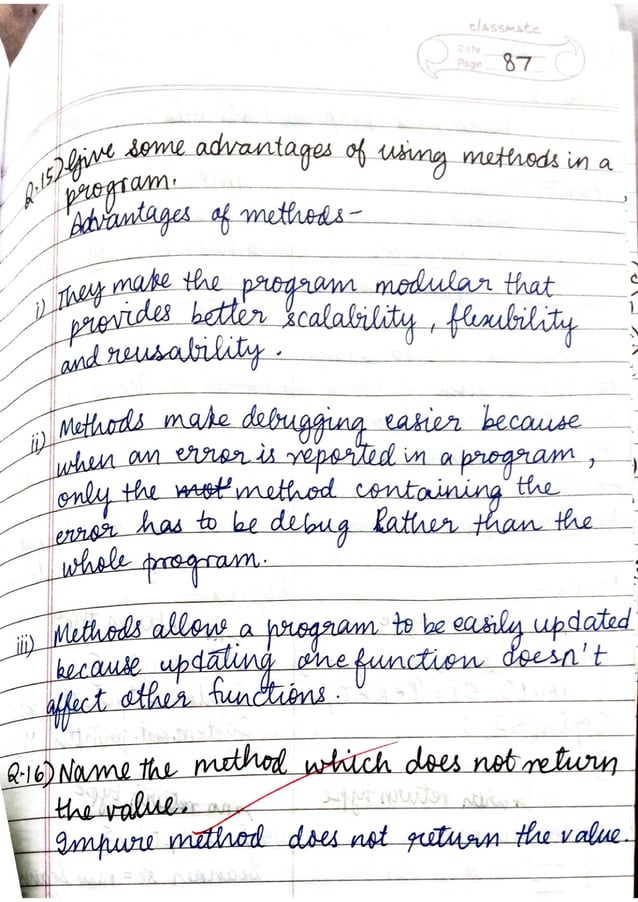 classmate
Date
Page 87
Q.15) Give some advantages of using methods in a
program.
Advantages of methods-
i) They make the program modular that
provides better scalability, flexibility
and reusability.
ii) Methods make debugging easier because
when an error is reported in a program,
only the method containing the
error has to be debug Rather than the
whole program.
iii) Methods allow a program to be easily updated
because updating one function doesn't
affect other functions.
Q.16) Name the method which does not return
the value.
Impure method does not return the value.